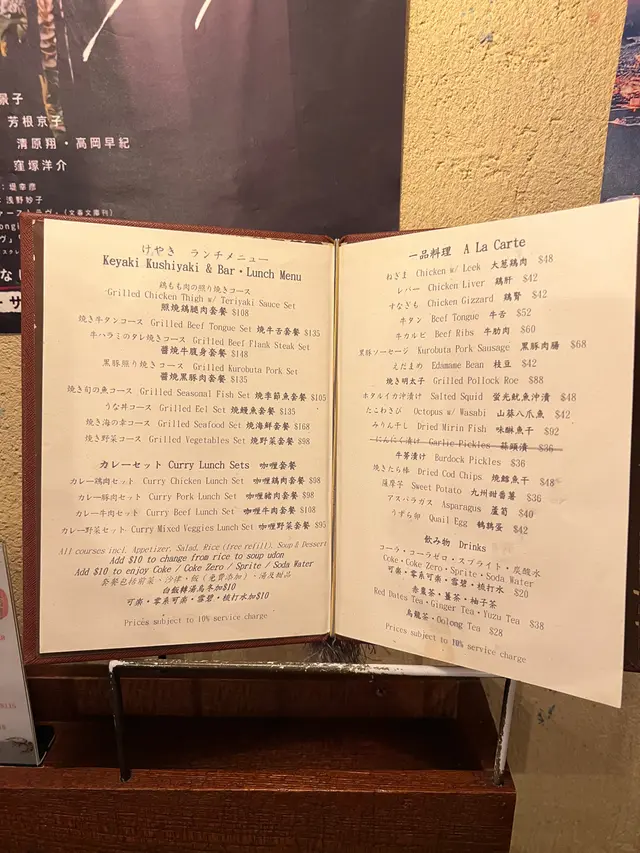 景子
芳根京子
清原翔・高岡早紀
窪塚洋介
：堤幸彦
：浅野妙子
（文春文庫刊）
けやき ランチメニュー
Keyaki Kushiyaki & Bar・Lunch Menu
鶏もも肉の照り焼きコース
Grilled Chicken Thigh w/ Teriyaki Sauce Set
照燒鷄腿肉套餐 $108
焼き牛タンコース Grilled Beef Tongue Set 燒牛舌套餐 $135
牛ハラミのタレ焼きコース Grilled Beef Flank Steak Set
醬燒牛腹身套餐 $148
黒豚照り焼きコース Grilled Kurobuta Pork Set
醬燒黑豚肉套餐 $135
焼き旬の魚コース Grilled Seasonal Fish Set 燒季節魚套餐 $105
うな丼コース Grilled Eel Set 燒鰻魚套餐 $135
焼き海の幸コース Grilled Seafood Set 燒海鮮套餐 $168
焼き野菜コース Grilled Vegetables Set 燒野菜套餐 $98
カレーセット Curry Lunch Sets 咖喱套餐
カレー鶏肉セット Curry Chicken Lunch Set 咖喱鷄肉套餐 $98
カレー豚肉セット Curry Pork Lunch Set 咖喱豬肉套餐 $98
カレー牛肉セット Curry Beef Lunch Set 咖喱牛肉套餐 $108
カレー野菜セット Curry Mixed Veggies Lunch Set 咖喱野菜套餐 $95
All courses incl. Appetizer, Salad, Rice (free refill), Soup & Dessert
Add $10 to change from rice to soup udon
Add $10 to enjoy Coke / Coke Zero / Sprite / Soda Water
套餐包括前菜、沙律、飯（免費添加）、湯及甜品
白飯轉湯烏冬加$10
可樂・零系可樂・雪碧・梳打水加$10
Prices subject to 10% service charge
一品料理 A La Carte
ねぎま Chicken w/ Leek 大葱鶏肉 $48
レバー Chicken Liver 鷄肝 $42
すなぎも Chicken Gizzard 鷄腎 $42
牛タン Beef Tongue 牛舌 $52
牛カルビ Beef Ribs 牛肋肉 $60
黒豚ソーセージ Kurobuta Pork Sausage 黑豚肉腸 $68
えだまめ Edamame Bean 枝豆 $42
焼き明太子 Grilled Pollock Roe $88
ホタルイカ沖漬け Salted Squid 螢光魷魚沖漬 $48
たこわさび Octopus w/ Wasabi 山葵八爪魚 $42
みりん干し Dried Mirin Fish 味醂魚干 $92
にんにく漬け Garlic Pickles 蒜頭漬 $36
牛蒡漬け Burdock Pickles $36
焼きたら棒 Dried Cod Chips 燒鱈魚干 $48
薩摩芋 Sweet Potato 九州甜番薯 $36
アスパラガス Asparagus 蘆筍 $40
うずら卵 Quail Egg 鵪鶉蛋 $42
飲み物 Drinks
コーラ・コーラゼロ・スプライト・炭酸水
Coke・Coke Zero・Sprite・Soda Water
可樂・零系可樂・雪碧・梳打水 $20
赤棗茶・薑茶・柚子茶
Red Dates Tea・Ginger Tea・Yuzu Tea $38
烏龍茶・Oolong Tea $28
Prices subject to 10% service charge